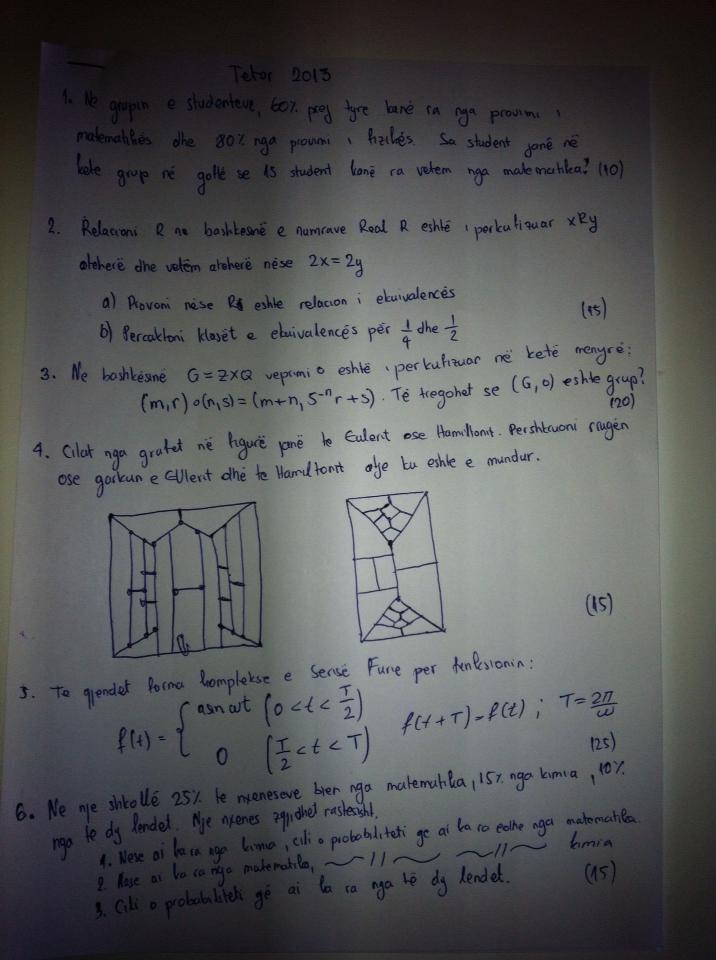 Tetor 2013
1. Ne grupin e studenteve, 60% prej tyre kanë ra nga provimi i
matematikës dhe 80% nga provimi i fizikës. Sa student janë në
kete grup në goftë se 15 student kanë ra vetem nga matematika? (10)
2. Relacioni R ne bashkesinë e numrave Real R eshtë i perkufizuar xRy
atëherë dhe vetëm atëherë nëse 2x = 2y
a) Provoni nëse R eshte relacion i ekuivalencës
b) Percaktoni klasët e ekuivalencës për 1/4 dhe 1/2 (15)
3. Ne bashkësinë G = Z×Q veprimi o eshtë i perkufizuar në ketë menyrë:
(m,r) o (n,s) = (m+n, 5^-n r + s). Të tregohet se (G, o) eshte grup?
(20)
4. Cilat nga grafet në figurë janë te Eulerit ose Hamiltonit. Pershkruoni rrugën
ose qarkun e Eulerit dhe te Hamiltonit atje ku eshte e mundur.
(15)
5. Te gjendet forma komplekse e Serisë Furie per funksionin:
f(t) = { asin wt (0 < t < T/2)
0 (T/2 < t < T) f(t+T) = f(t) ; T = 2π/ω
(25)
6. Ne nje shkollë 25% te nxeneseve bien nga matematika, 15% nga kimia, 10%
nga te dy lendet. Nje nxenes zgjidhet rastesisht.
1. Nese ai ka ra nga kimia, cili o probabiliteti qe ai ka ra edhe nga matematika.
2. Nese ai ka ra nga matematika, ~ // ~ ~ // ~ kimia
3. Cili o probabiliteti që ai ka ra nga të dy lendet. (15)